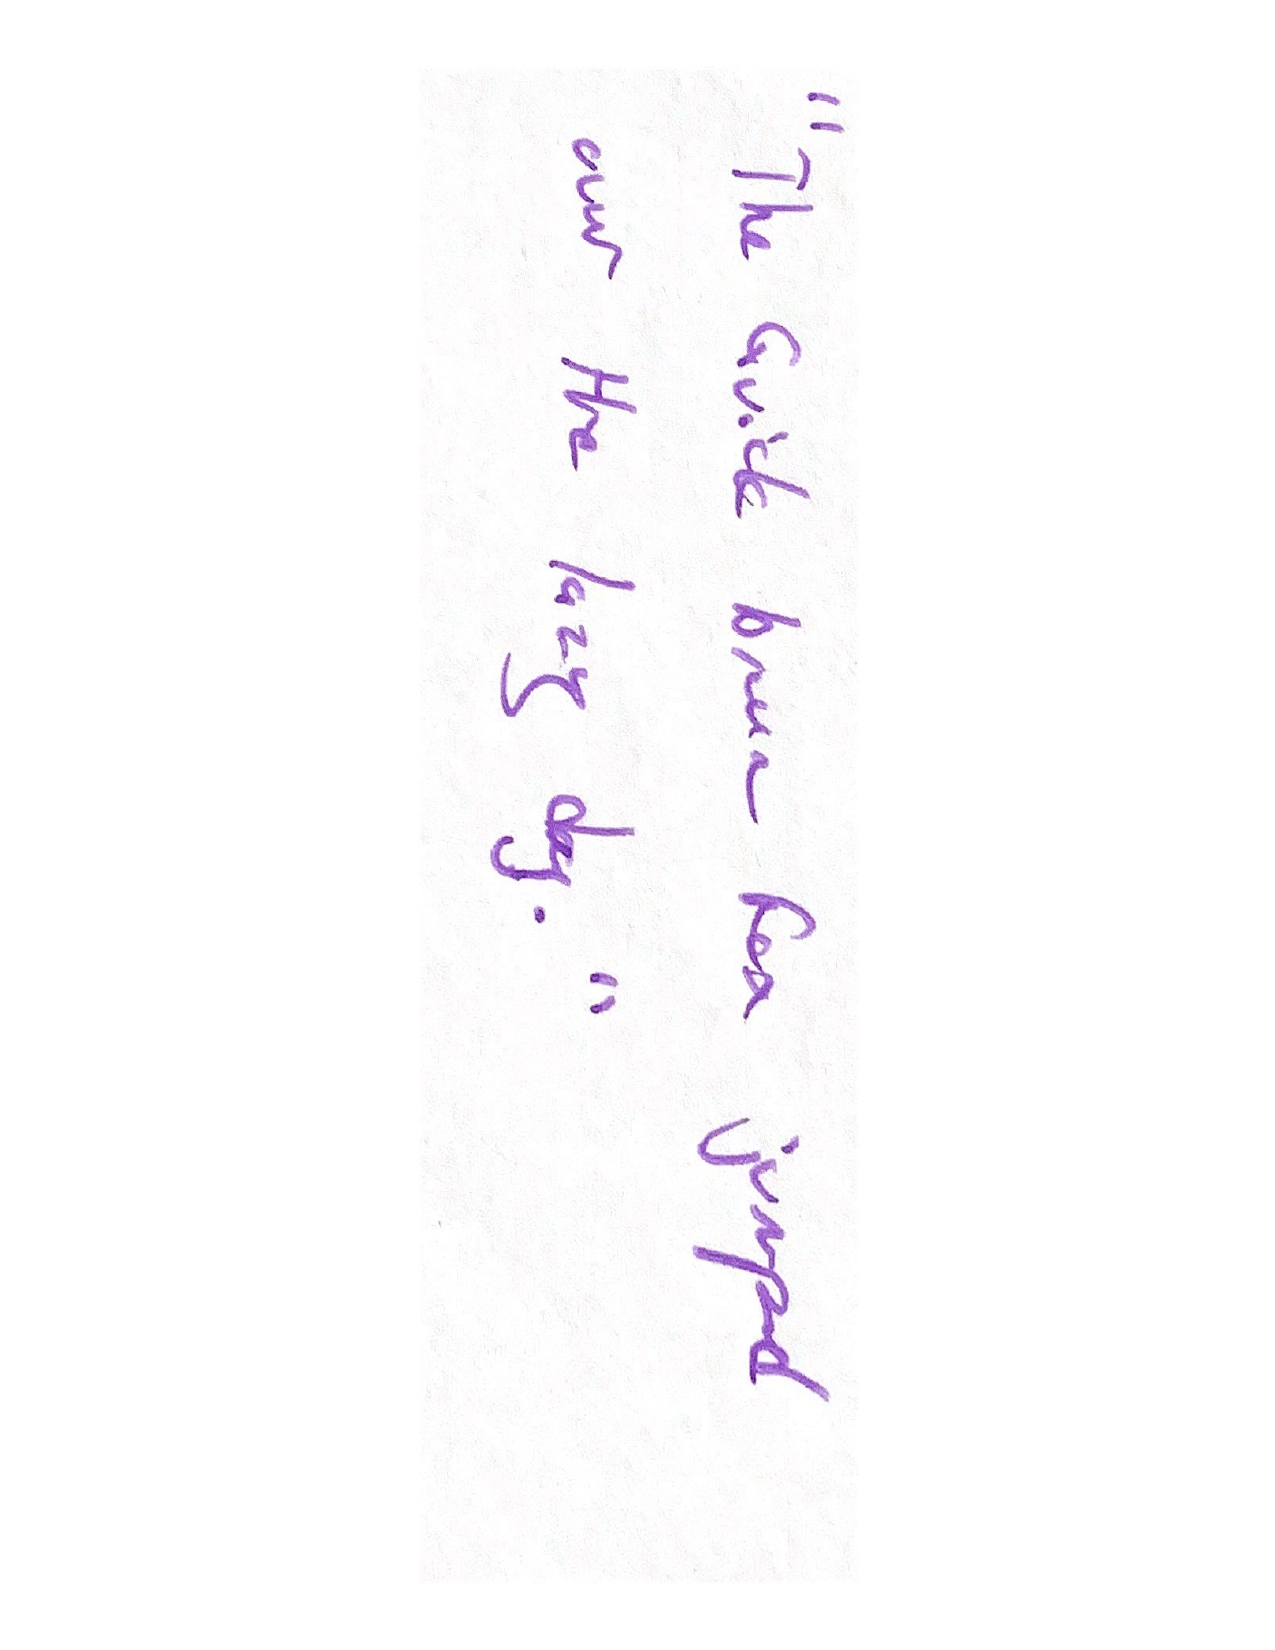 "The quick brown fox jumped
over the lazy dog."